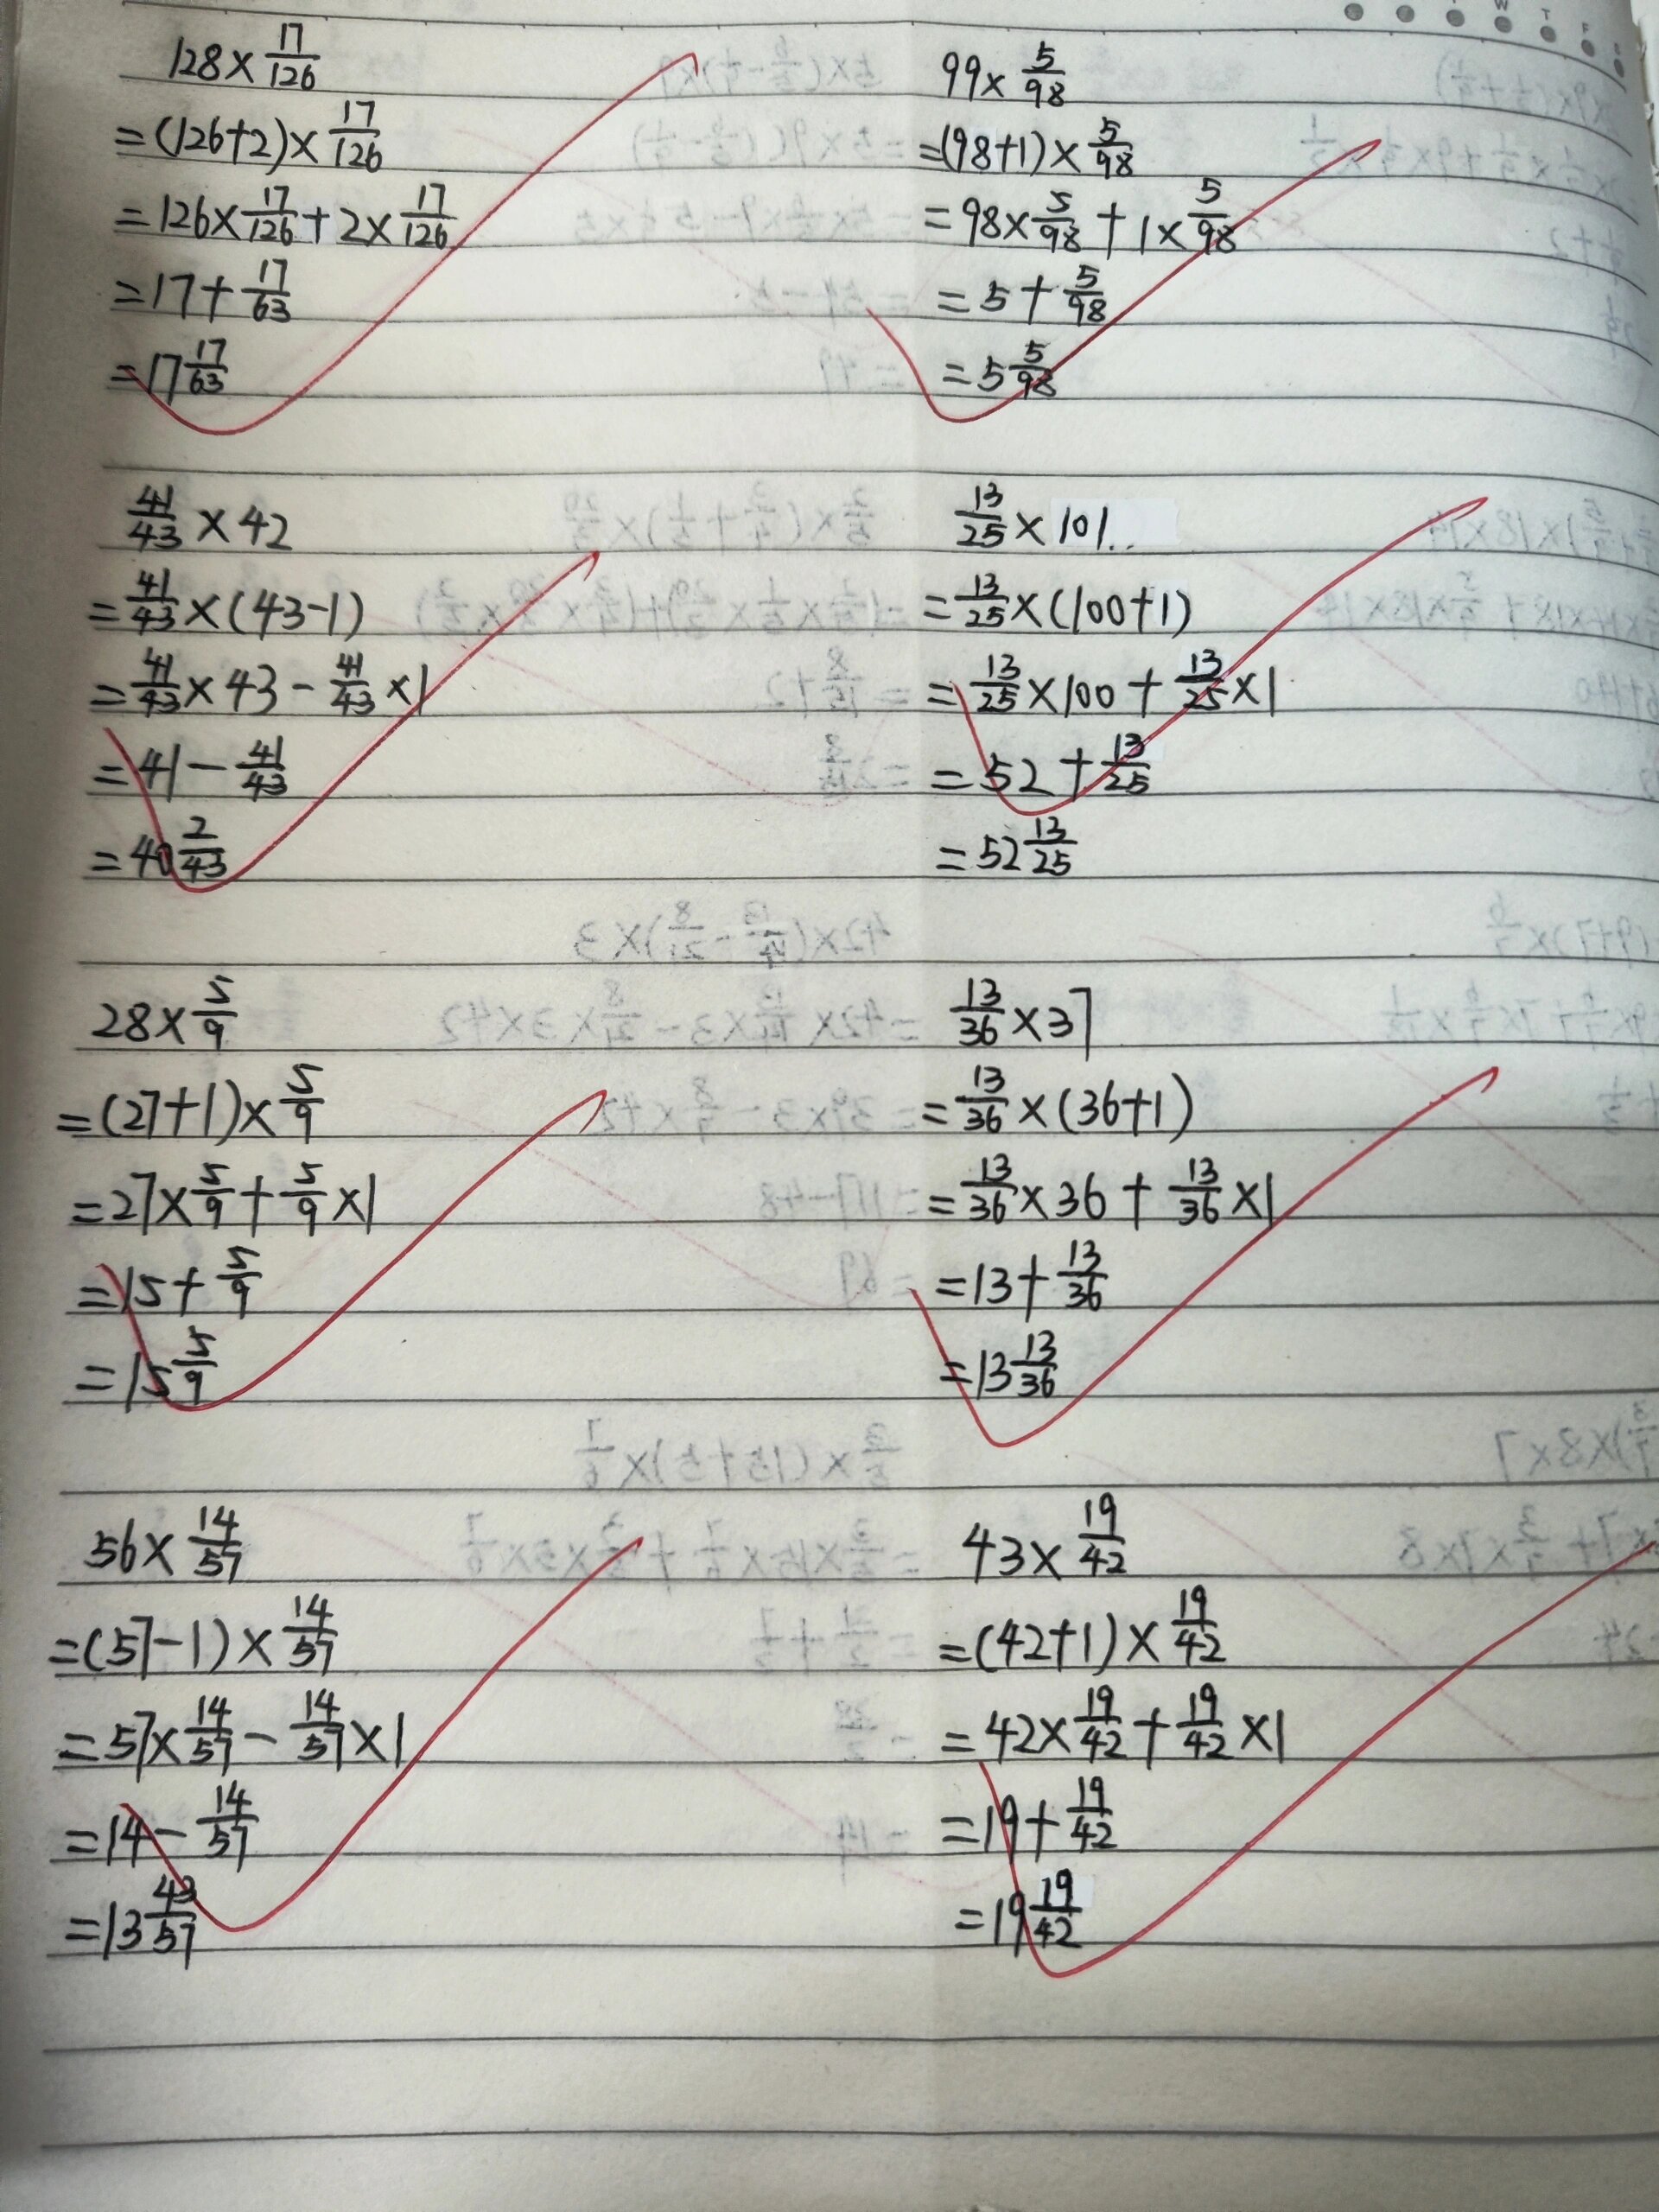 128×17/126
=(126+2)×17/126
=126×17/126+2×17/126
=17+17/63
=17 17/63
99×5/98
=(98+1)×5/98
=98×5/98+1×5/98
=5+5/98
=5 5/98
41/43×42
=41/43×(43-1)
=41/43×43-41/43×1
=41-41/43
=40 2/43
13/25×101
=13/25×(100+1)
=13/25×100+13/25×1
=52+13/25
=52 13/25
28×5/9
=(27+1)×5/9
=27×5/9+5/9×1
=15+5/9
=15 5/9
13/36×37
=13/36×(36+1)
=13/36×36+13/36×1
=13+13/36
=13 13/36
56×14/57
=(57-1)×14/57
=57×14/57-14/57×1
=14-14/57
=13 43/57
43×19/42
=(42+1)×19/42
=42×19/42+19/42×1
=19+19/42
=19 19/42